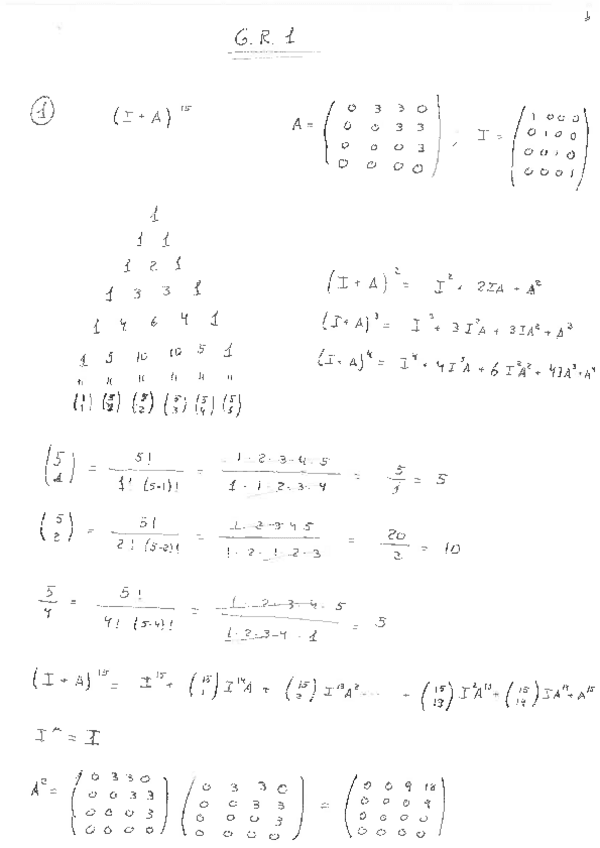 G. R. 1
① (I + A)^15 A = ( 0 3 3 0 / 0 0 3 3 / 0 0 0 3 / 0 0 0 0 ) , I = ( 1 0 0 0 / 0 1 0 0 / 0 0 1 0 / 0 0 0 1 )
1
1 1
1 2 1
1 3 3 1
1 4 6 4 1
1 5 10 10 5 1
(I + A)^2 = I^2 + 2IA + A^2
(I + A)^3 = I^3 + 3I^2A + 3IA^2 + A^3
(I + A)^4 = I^4 + 4I^3A + 6I^2A^2 + 4IA^3 + A^4
(5 1) = 5! / 1! (5-1)! = 1·2·3·4·5 / 1·1·2·3·4 = 5/1 = 5
(5 2) = 5! / 2! (5-2)! = 1·2·3 4 5 / 1·2·1·2·3 = 20/2 = 10
5/4 = 5! / 4! (5-4)! = 1·2·3·4·5 / 1·2·3·4·1 = 5
(I + A)^15 = I^15 + (15 1) I^14 A + (15 2) I^13 A^2 ... + (15 13) I^2 A^13 + (15 14) I A^14 + A^15
I^n = I
A^2 = ( 0 3 3 0 / 0 0 3 3 / 0 0 0 3 / 0 0 0 0 ) ( 0 3 3 0 / 0 0 3 3 / 0 0 0 3 / 0 0 0 0 ) = ( 0 0 9 18 / 0 0 0 9 / 0 0 0 0 / 0 0 0 0 )